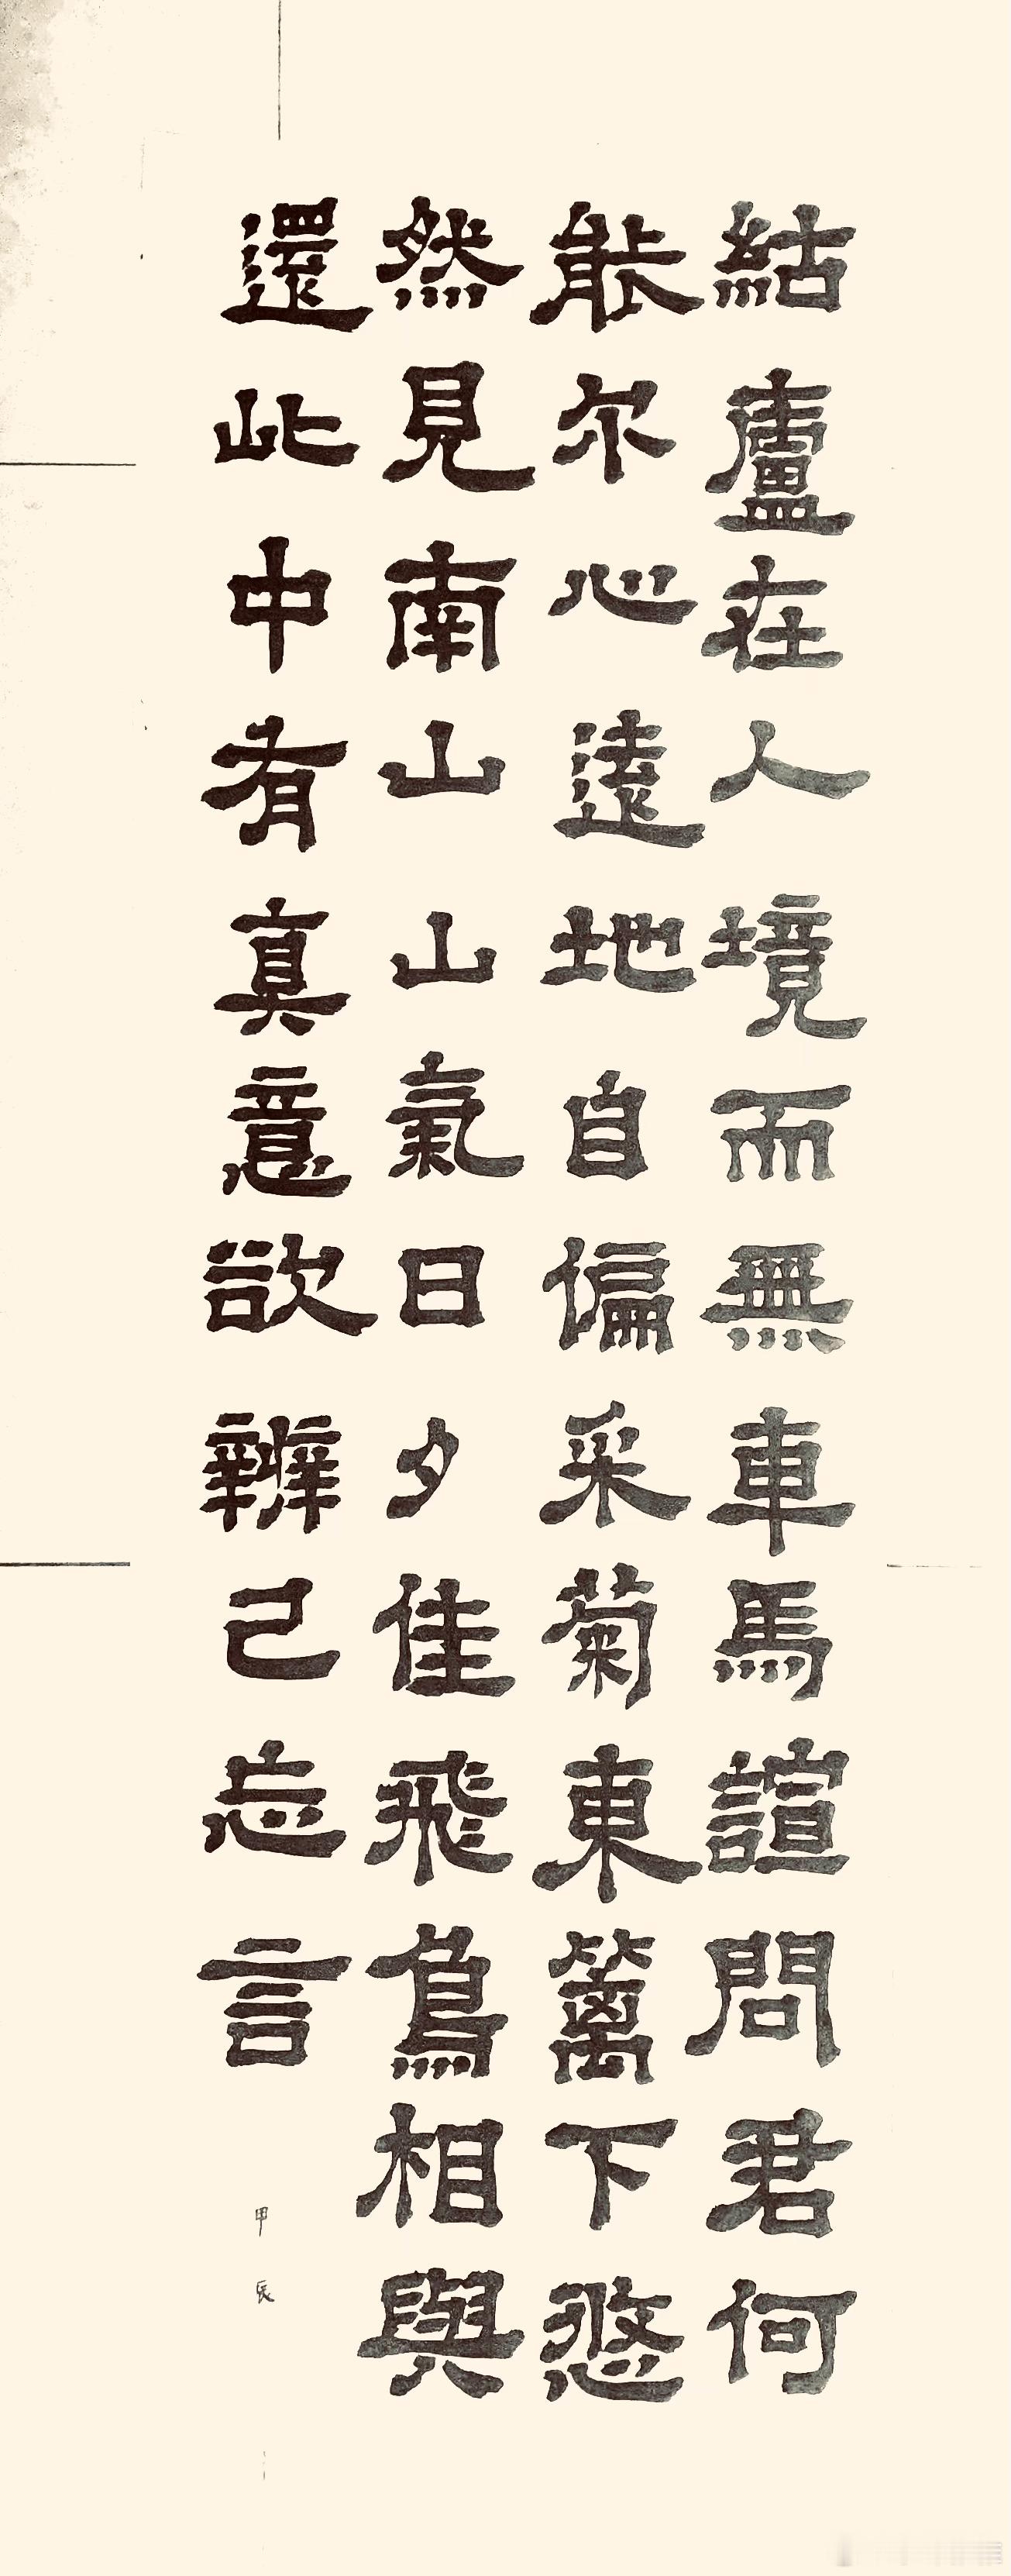 結廬在人境而無車馬諠問君何
能尔心遠地自偏采菊東籬下悠
然見南山山氣日夕佳飛鳥相與
還此中有真意欲辨已忘言
甲辰